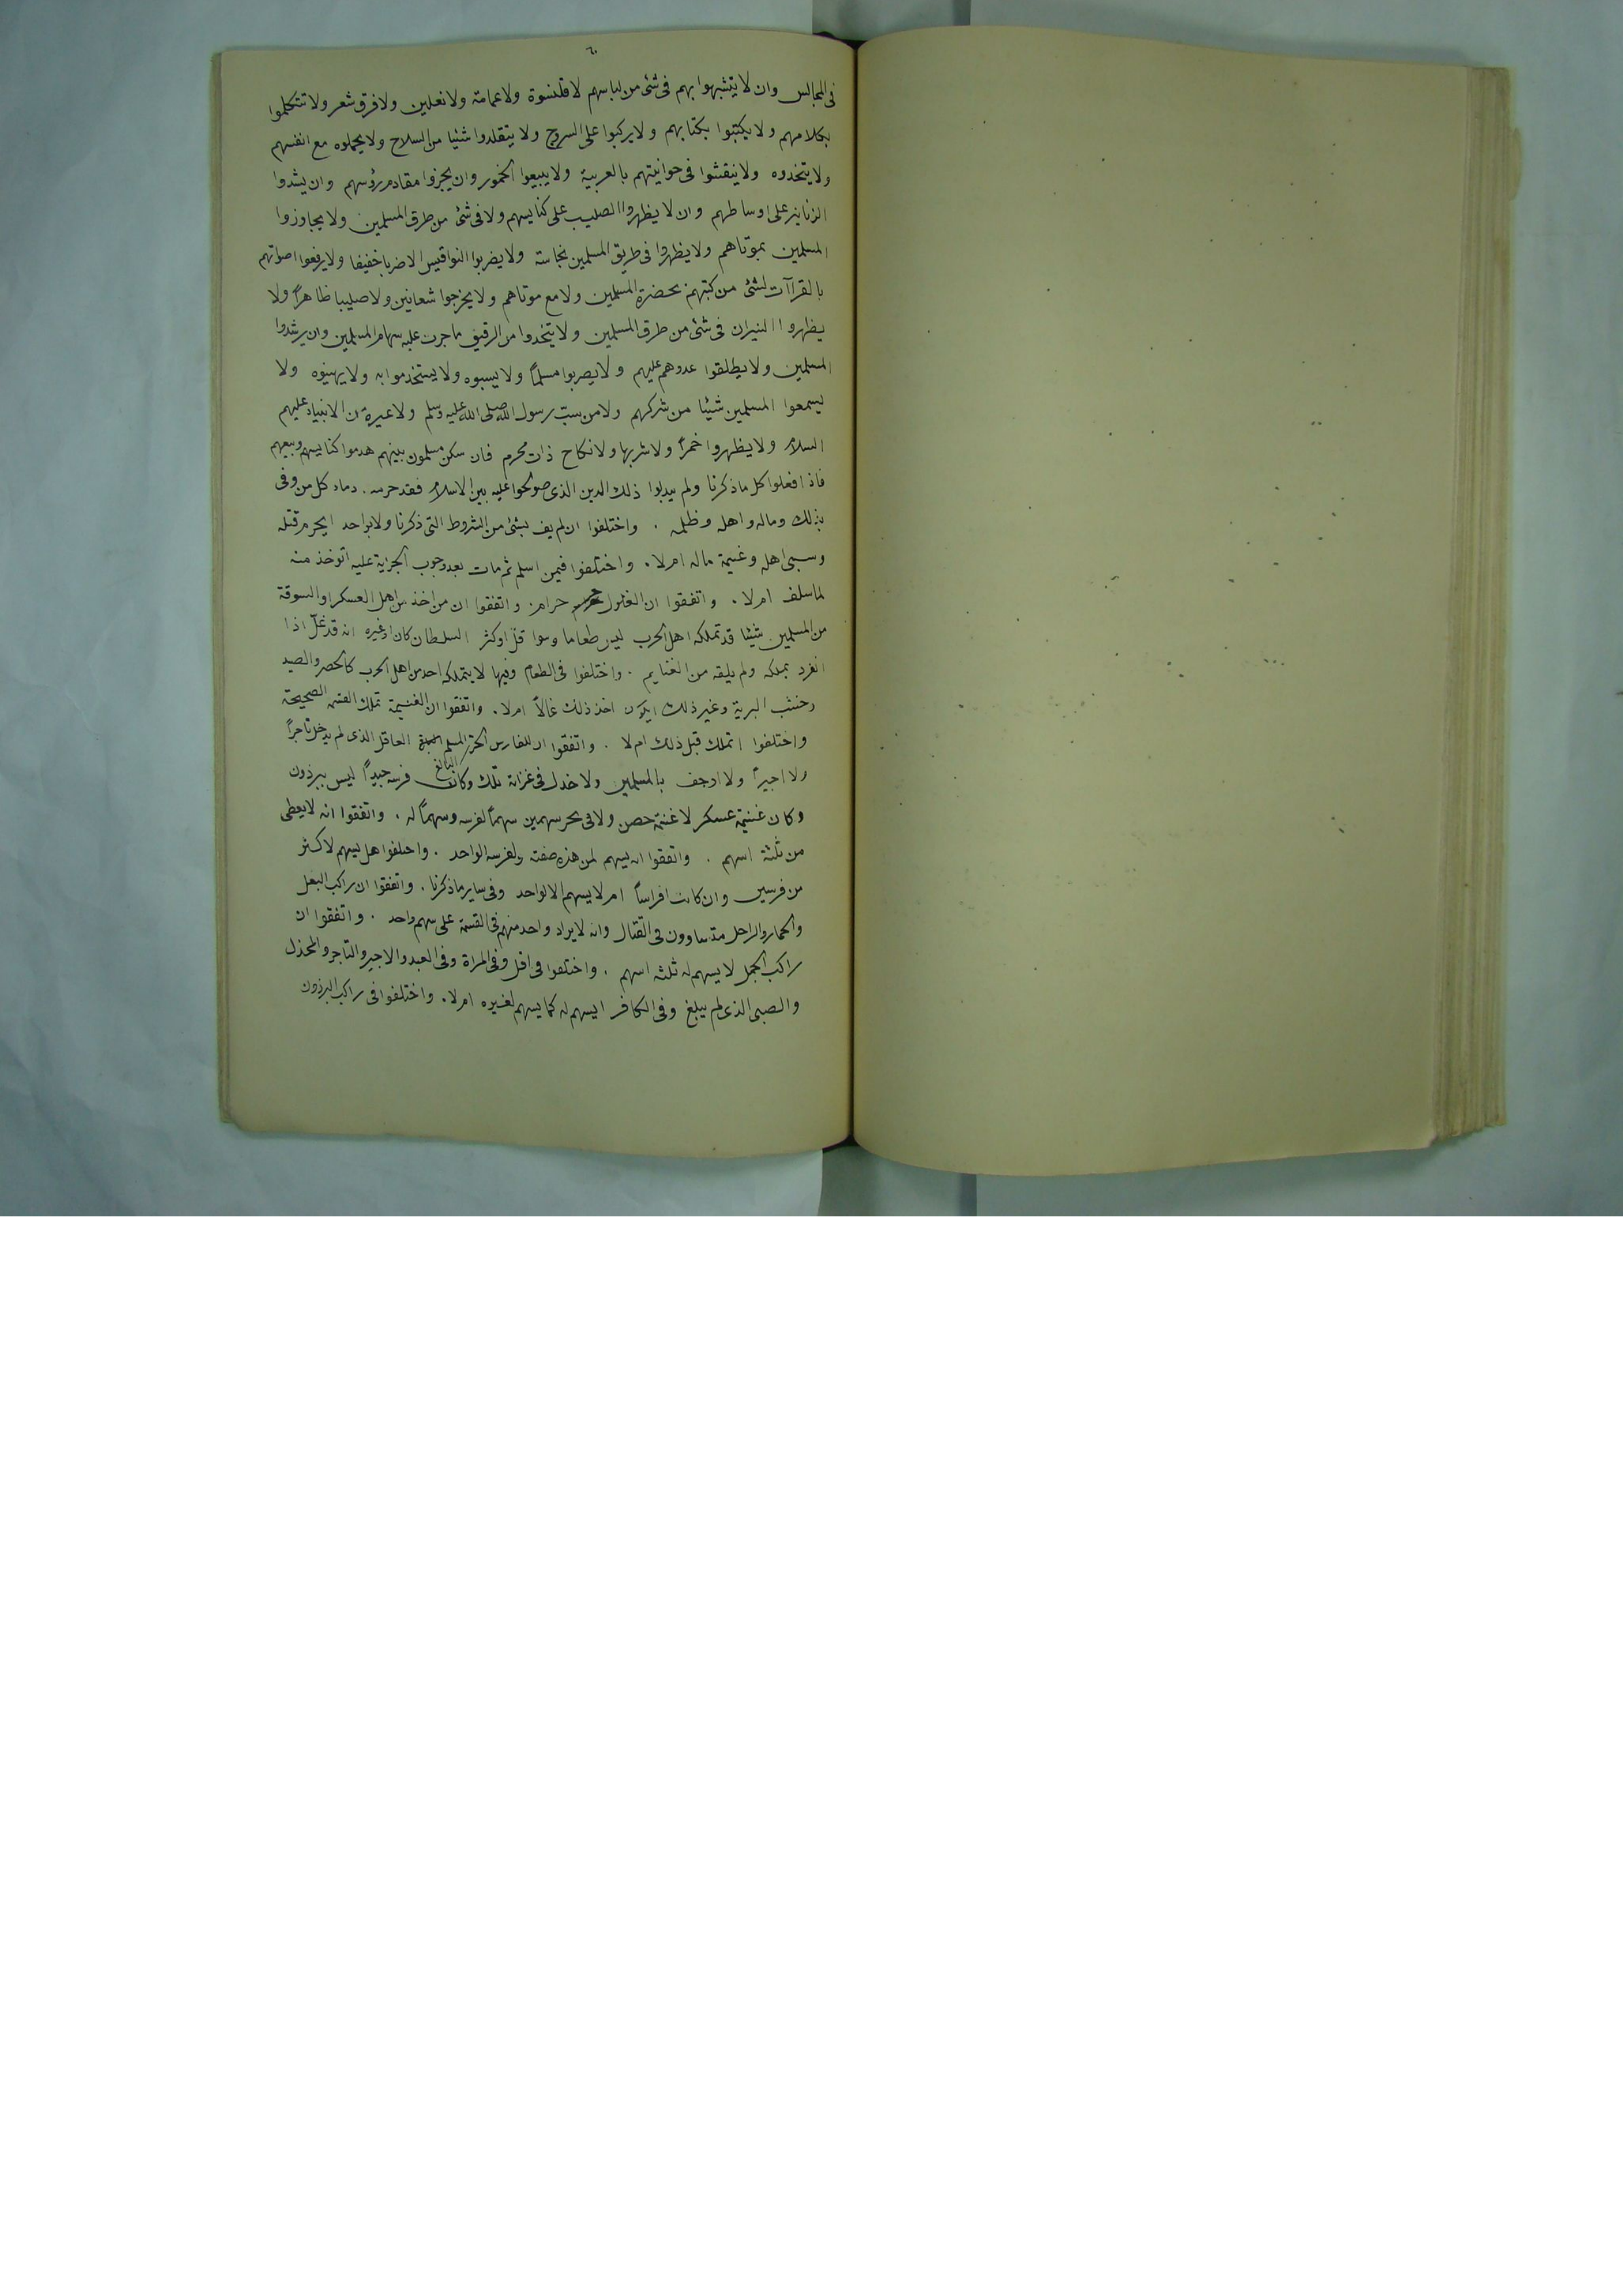 ٦٠
فى المجالس وان لا يتشبهوا بهم فى شئ من لباسهم لا قلنسوة ولا عمامة ولا نعلين ولا فرق شعر ولا تتكلموا
بكلامهم ولا يكتبوا بكتابهم ولا يركبوا على السروج ولا يتقلدوا شئيا من السلاح ولا يحملوه مع انفسهم
ولا يتخذوه ولا ينقشوا فى حوانيتهم بالعربية ولا يبيعوا الخمور وان يجزوا مقادم رؤسهم وان يشدوا
الزنانير على اوساطهم وان لا يظهروا الصليب على كنايسهم ولا فى شئ من طرق المسلمين ولا يجاوزوا
المسلمين بموتاهم ولا يظهروا فى طريق المسلمين نجاسته ولا يضربوا النواقيس الا ضربا خفيفا ولا يرفعوا اصواتهم
بالقراآت لشئ من كتبهم بحضرة المسلمين ولا مع موتاهم ولا يخرجوا شعانين ولا صليبا ظاهراً ولا
يظهروا النيران فى شئ من طرق المسلمين ولا يتخدوا من الرقيق ما جرت عليه سهام المسلمين وان يرشدوا
المسلمين ولا يطلقوا عدوهم عليهم ولا يضربوا مسلماً ولا يسبوه ولا يستخدموا به ولا يهينوه ولا
يسمعوا المسلمين شيئا من شركهم ولا من سب رسول الله صلى الله عليه وسلم ولا غيره من الانبياء عليهم
السلام ولا يظهروا خمراً ولا شربها ولا نكاح ذات محرم فان سكن مسلمون بينهم هدموا كنايسهم وبيعهم
فاذا فعلوا كل ما ذكرنا ولم يبدلوا ذلك الدين الذى صولحوا عليه بين الاسلام فقد حرمه . دماء كل من وفى
بذلك وماله واهله وظلمه . واختلفوا ان لم يف بشئ من الشروط التى ذكرنا ولا بواحد ايحرم قتله
وسبى اهله وغنيمة ماله ام لا . واختلفوا فيمن اسلم ثم مات بعد وجوب الجزية عليه اتوخذ منه
لما سلف ام لا . واتفقوا ان الغلول حرام . واتفقوا ان من اخذ من اهل العسكر او السوقة
من المسلمين شيئا قد تملكه اهل الحرب ليس طعاما وسوا قل او كثر السلطان كان او غيره انه قد غل اذا
انفرد بملكه ولم يلقه من الغنايم . واختلفوا فى الطعام وفيها لا يتملكه احد من اهل الحرب كالحصر والصيد
وخشب البرية وغير ذلك ايكون اخذ ذلك غالاً ام لا . واتفقوا ان الغنيمة تملك القسمه الصحيحة
واختلفوا اتملك قبل ذلك ام لا . واتفقوا ان للفارس الحر المسلم البالغ العاقل الذى لم يدخل تاجراً
ولا اجيراً ولا ارجف بالمسلمين ولا خذل فى غزاته تلك وكانت فرسه جيداً ليس ببرذون
وكان غنيمة عسكر لا غنيمة حصن ولا فى بحر سهمين سهماً لفرسه وسهماً له . واتفقوا انه لا يعطى
من ثلثة اسهم . واتفقوا انه يسهم لمن هذه صفته ولفرسه الواحد . واختلفوا هل يسهم لاكثر
من فرسين وان كانت افراساً ام لا يسهم الا لواحد وفى ساير ما ذكرنا . واتفقوا ان راكب البغل
والحمار والراجل متساوون فى القتال وانه لا يزاد واحد منهم فى القسمة على سهم واحد . واتفقوا ان
راكب الجمل لا يسهم له ثلثه اسهم . واختلفوا فى اقل وفى المراة وفى العبد والاجير والتاجر والمخذل
والصبى الذى لم يبلغ وفى الكافر ايسهم له كما يسهم لغيره ام لا . واختلفوا فى راكب البرذون